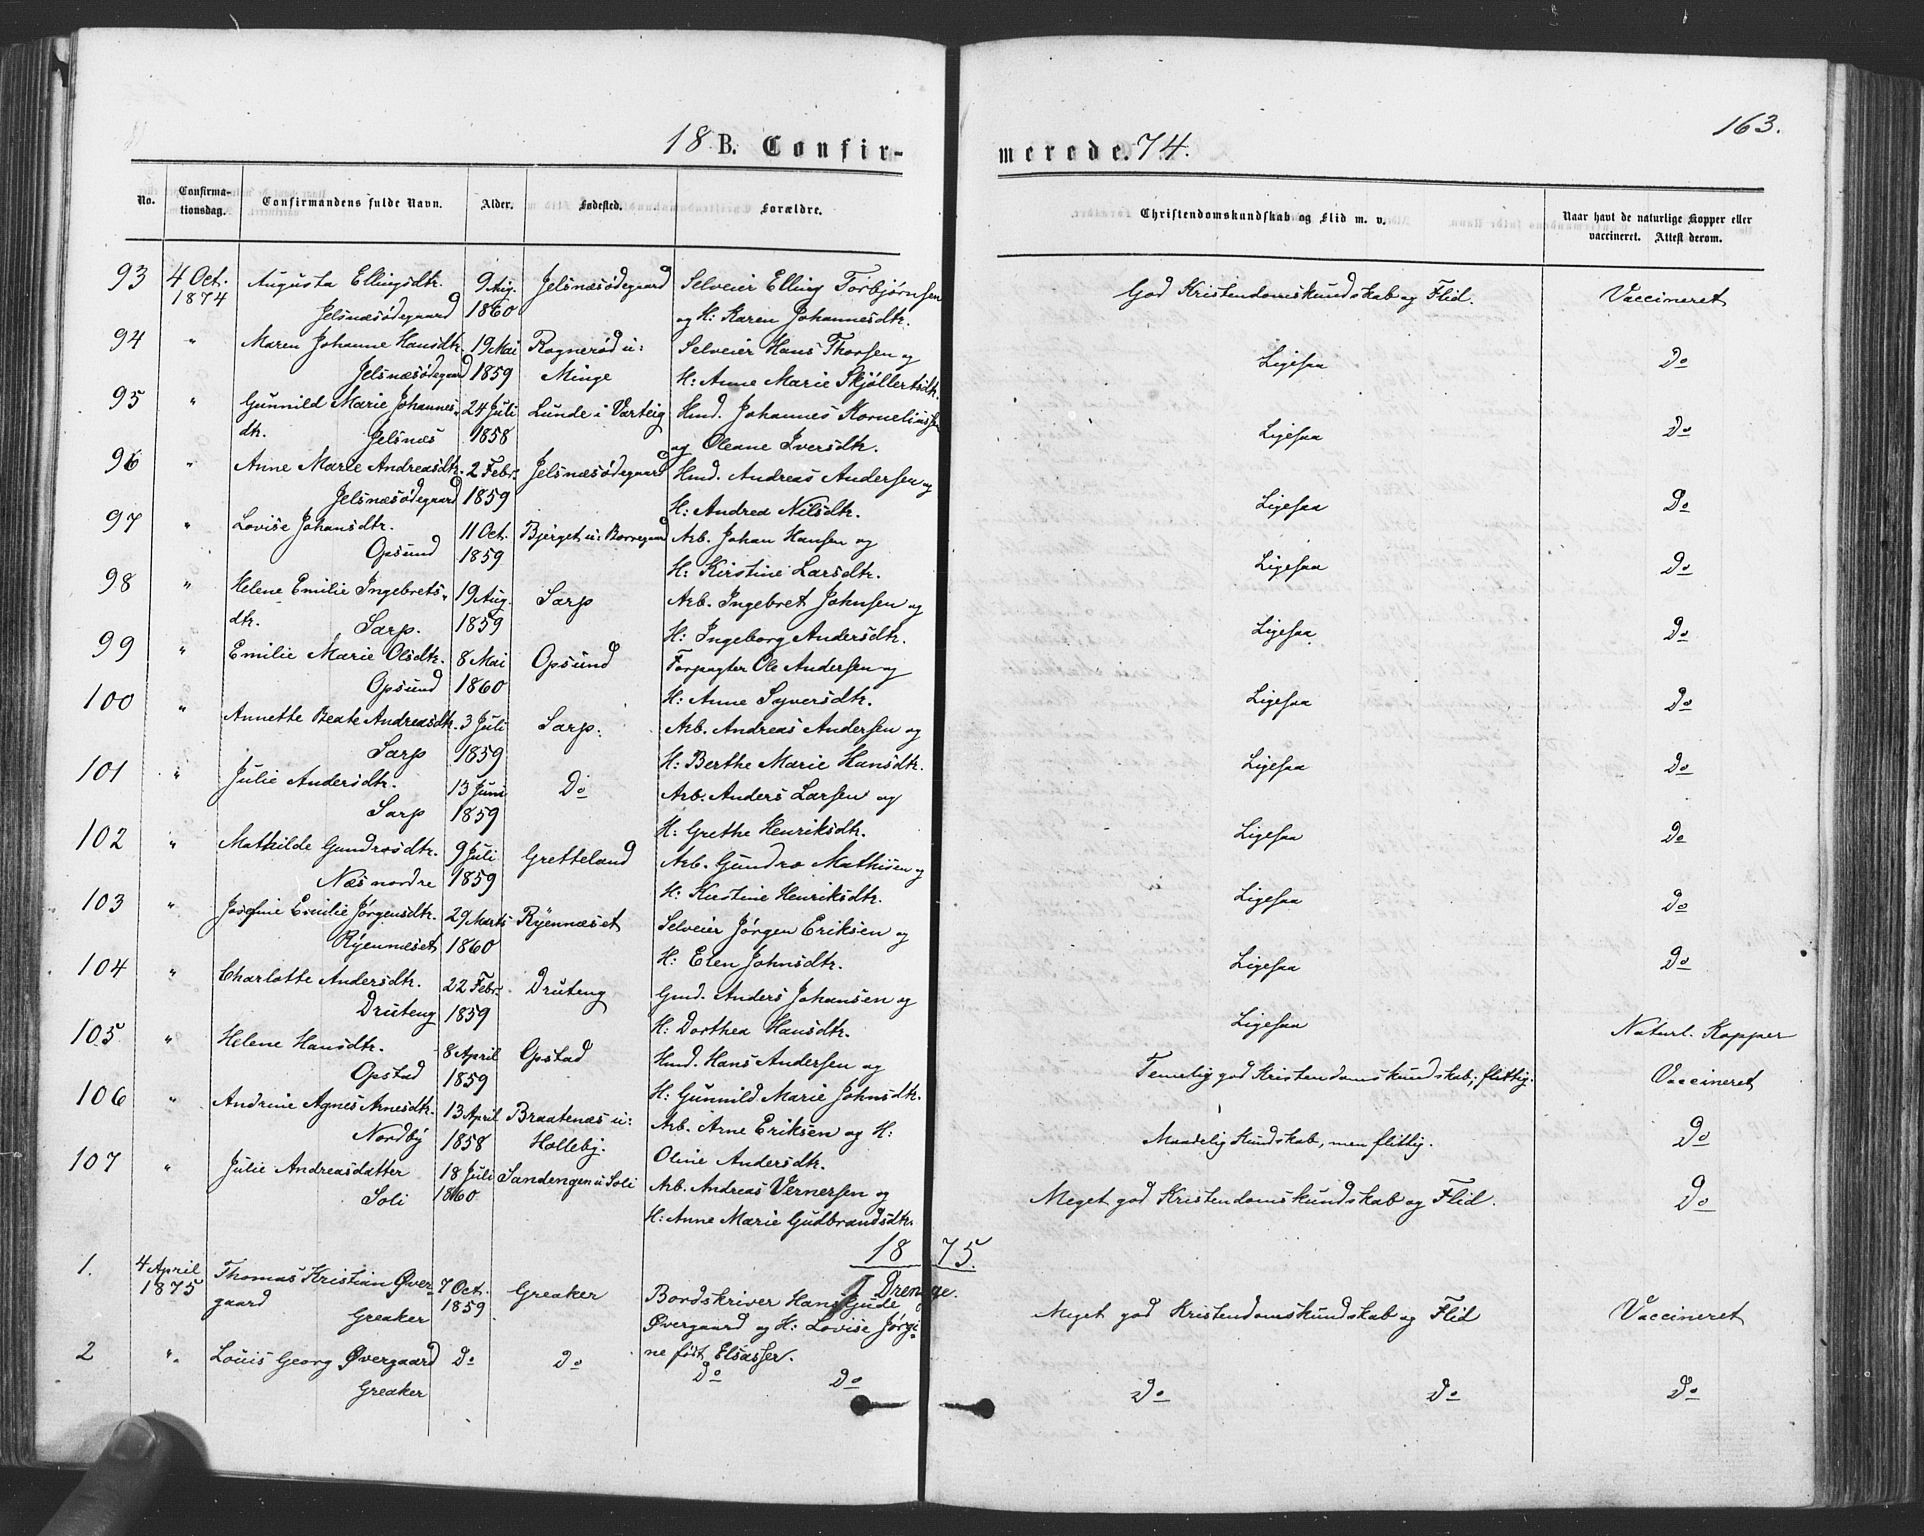 163.
18 B. Confir- merede. 74.
No. Confirma- tionsdag. Confirmandens fulde Navn. Alder. Fødested. Forældre. Christendomskundskab og Flid m. v. Naar havt de naturlige Kopper eller vaccineret. Attest derom.
93 4 Oct. Augusta Ellingsdtr. 9 Aug. Jelsnæsødegaard Selveier Elling Torbjørnsen God Kristendomskundskab og Flid. Vaccineret
1874 Jelsnæsødegaard 1860 og H: Karen Johannesdtr.
94 " Maren Johanne Hansdtr. 19 Mai Rognerød u: Selveier Hans Thorsen og Ligesaa Do
Jelsnæsødegaard 1859 Minge H: Anne Marie Skjøllertsdtr.
95 " Gunnild Marie Johannes- 24 Juli Lunde i Varteig Hmd. Johannes Korneliussen Ligesaa Do
dtr. Jelsnæs 1858 og Oleane Iversdtr.
96 " Anne Marie Andreasdtr. 2 Febr. Jelsnæsødegaard Hmd. Andreas Andersen og Ligesaa Do
Jelsnæsødegaard 1859 H: Andrea Nilsdtr.
97 " Lovise Johansdtr. 11 Oct. Bjerget u: Borregaard Arb. Johan Hansen og Ligesaa Do
Opsund 1859 H: Kirstine Larsdtr.
98 " Helene Emilie Ingebrets- 19 Aug. Sarp Arb. Ingebret Johnsen og Ligesaa Do
dtr. Sarp. 1859 H: Ingeborg Andersdtr.
99 " Emilie Marie Olsdtr. 8 Mai Opsund Forpagter Ole Andersen og Ligesaa Do
Opsund 1860 H: Anne Syversdtr.
100 " Annette Beate Andreasdtr. 3 Juli Sarp. Arb. Andreas Andersen og Ligesaa Do
Sarp 1859 H: Berthe Marie Hansdtr.
101 " Julie Andersdtr. 13 Juni Do Arb. Anders Larsen og Ligesaa Do
Sarp 1859 H: Grethe Henriksdtr.
102 " Mathilde Gundrosdtr. 9 Juli Gretteland Arb. Gundro Mathisen og Ligesaa Do
Næs nordre 1859 H: Kirstine Henriksdtr.
103 " Josefine Emilie Jørgensdtr. 29 Marts Ryennæset Selveier Jørgen Eriksen og Ligesaa Do
Ryennæset 1860 H: Elen Johnsdtr.
104 " Charlotte Andersdtr. 22 Febr. Druteng Gmd. Anders Johansen og Ligesaa Naturl. Kopper
Druteng 1859 H: Dorthea Hansdtr.
105 " Helene Hansdtr. 8 April Opstad Hmd. Hans Andersen og Temelig god Kristendomskundskab; flittig. Vaccineret
Opstad 1859 H: Gunnild Marie Johnsdtr.
106 " Andrine Agnes Arnesdtr. 13 April Braatenæs u: Arb. Arne Eriksen og H: Maadelig Kundskab, men flittig. Do
Nordby 1858 Holleby. Oline Andersdtr.
107 " Julie Andreasdatter 18 Juli Sandengen u Soli Arb. Andreas Vernersen og Meget god Kristendomskundskab og Flid. Do
Soli 1860 H: Anne Marie Gudbrandsdtr.
1875.
Drenge.
1. 4 April Thomas Kristian Øver- 7 Oct. Greaker Bordskriver Hans Gude Meget god Kristendomskundskab og Flid Vaccineret
1875 gaard 1859 Øvergaard og H: Lovise Jørgi-
Greaker ne født Elsasser.
2 " Louis Georg Øvergaard Do Do Do Do Do Do Do
Greaker